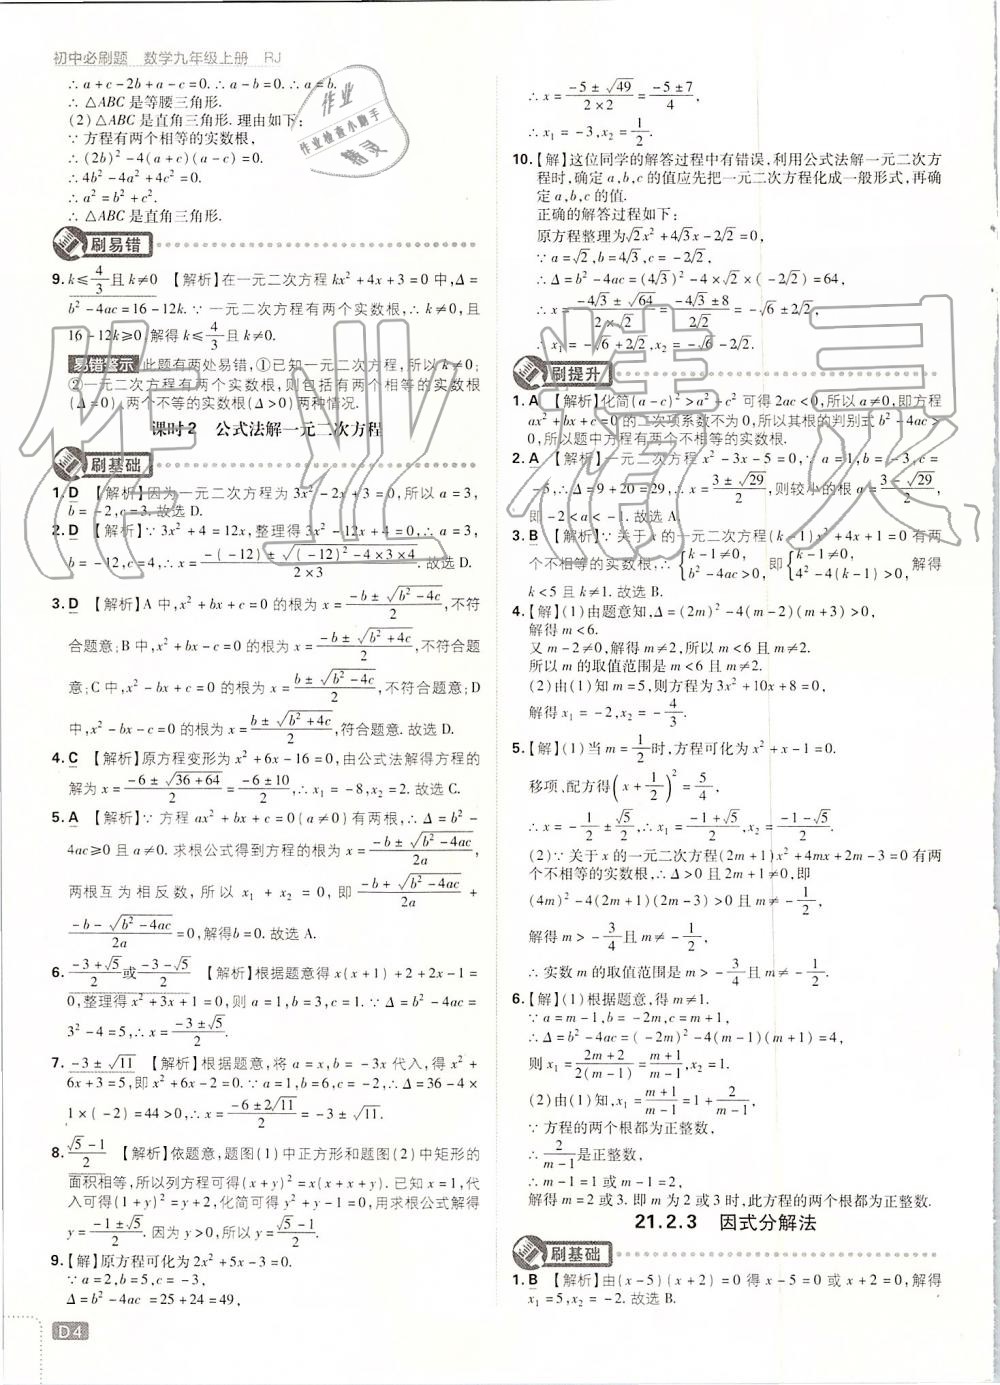 初中必刷题 数学九年级上册 RJ
∴a+c-2b+a-c=0.∴a-b=0.∴a=b.
∴△ABC是等腰三角形.
(2)△ABC是直角三角形.理由如下:
∵方程有两个相等的实数根,
∴(2b)²-4(a+c)(a-c)=0.
∴4b²-4a²+4c²=0.
∴a²=b²+c².
∴△ABC是直角三角形.
刷易错
9. k≤4/3且k≠0 【解析】在一元二次方程kx²+4x+3=0中,Δ=
b²-4ac=16-12k.∵一元二次方程有两个实数根,∴k≠0,且
16-12k≥0,解得k≤4/3且k≠0.
易错警示 此题有两处易错,①已知一元二次方程,所以k≠0;
②一元二次方程有两个实数根,则包括有两个相等的实数根
(Δ=0),两个不等的实数根(Δ>0)两种情况.
课时2 公式法解一元二次方程
刷基础
1. D 【解析】因为一元二次方程为3x²-2x+3=0,所以a=3,
b=-2,c=3.故选D.
2. D 【解析】∵3x²+4=12x,整理得3x²-12x+4=0,∴a=3,
b=-12,c=4,∴x=(-(-12)±√((-12)²-4×3×4))/(2×3).故选D.
3. D 【解析】A中,x²+bx+c=0的根为x=(-b±√(b²-4c))/2,不符
合题意;B中,x²+bx-c=0的根为x=(-b±√(b²+4c))/2,不符合题
意;C中,x²-bx+c=0的根为x=(b±√(b²-4c))/2,不符合题意;D
中,x²-bx-c=0的根为x=(b±√(b²+4c))/2,符合题意.故选D.
4. C 【解析】原方程变形为x²+6x-16=0,由公式法解得方程的
解为x=(-6±√(36+64))/2=(-6±10)/2,∴x₁=-8,x₂=2.故选C.
5. A 【解析】∵方程ax²+bx+c=0(a≠0)有两根,∴Δ=b²-
4ac≥0且a≠0.求根公式得到方程的根为x=(-b±√(b²-4ac))/2a,
两根互为相反数,所以x₁+x₂=0,即(-b+√(b²-4ac))/2a+
(-b-√(b²-4ac))/2a=0,解得b=0.故选A.
6. (-3+√5)/2或(-3-√5)/2 【解析】根据题意得x(x+1)+2+2x-1=
0,整理得x²+3x+1=0,则a=1,b=3,c=1.∵Δ=b²-4ac=
3²-4=5,∴x=(-3±√5)/2.
7. -3±√11 【解析】根据题意,将a=x,b=-3x代入,得x²+
6x+3=5,即x²+6x-2=0.∵a=1,b=6,c=-2,∴Δ=36-4×
1×(-2)=44>0,∴x=(-6±2√11)/2=-3±√11.
8. (√5-1)/2 【解析】依题意,题图(1)中正方形和题图(2)中矩形的
面积相等,所以列方程可得(x+y)²=x(x+x+y).已知x=1,代
入可得(1+y)²=y+2,化简可得y²+y-1=0,用求根公式解得
y=(-1±√5)/2.因为y>0,所以y=(√5-1)/2.
9.【解】原方程可化为2x²+5x-3=0.
∵a=2,b=5,c=-3,
∴Δ=b²-4ac=25+24=49,
D4
∴x=(-5±√49)/(2×2)=(-5±7)/4,
∴x₁=-3,x₂=1/2.
10.【解】这位同学的解答过程中有错误,利用公式法解一元二次方
程时,确定a,b,c的值应先把一元二次方程化成一般形式,再确
定a,b,c的值.
正确的解答过程如下:
原方程整理为√2x²+4√3x-2√2=0,
∵a=√2,b=4√3,c=-2√2,
∴Δ=b²-4ac=(4√3)²-4×√2×(-2√2)=64,
∴x=(-4√3±√64)/(2√2)=(-4√3±8)/(2√2)=-√6±2√2,
∴x₁=-√6+2√2,x₂=-√6-2√2.
刷提升
1. A 【解析】化简(a-c)²>a²+c²可得2ac<0,所以a≠0,即方程
ax²+bx+c=0的二次项系数不为0,所以其根的判别式b²-4ac>
0,所以题中方程有两个不相等的实数根.故选A.
2. A 【解析】∵一元二次方程x²-3x-5=0,∴a=1,b=-3,c=
-5,∴Δ=9+20=29,∴x=(3±√29)/2,则较小的根a=(3-√29)/2,
即-2<a<-1.故选A.
3. B 【解析】∵关于x的一元二次方程(k-1)x²+4x+1=0有两
个不相等的实数根,∴{k-1≠0, b²-4ac>0,即{k-1≠0, 4²-4(k-1)>0,解得
k<5且k≠1.故选B.
4.【解】(1)由题意知,Δ=(2m)²-4(m-2)(m+3)>0,
解得m<6.
又m-2≠0,解得m≠2,所以m<6且m≠2.
所以m的取值范围是m<6且m≠2.
(2)由(1)知m=5,则原方程为3x²+10x+8=0,
解得x₁=-2,x₂=-4/3.
5.【解】(1)当m=1/2时,方程可化为x²+x-1=0.
移项、配方得(x+1/2)²=5/4,
∴x=-1/2±√5/2,∴x₁=(-1+√5)/2,x₂=(-1-√5)/2.
(2)∵关于x的一元二次方程(2m+1)x²+4mx+2m-3=0有两
个不相等的实数根,∴Δ>0且2m+1≠0,即
(4m)²-4(2m+1)(2m-3)>0且m≠-1/2,
解得m>-3/4且m≠-1/2,
∴实数m的取值范围是m>-3/4且m≠-1/2.
6.【解】(1)根据题意,得m≠1.
∵a=m-1,b=-2m,c=m+1,
∴Δ=b²-4ac=(-2m)²-4(m-1)(m+1)=4,
则x₁=(2m+2)/(2(m-1))=(m+1)/(m-1),x₂=1.
(2)由(1)知,x₁=(m+1)/(m-1)=1+2/(m-1),
∵方程的两个根都为正整数,
∴2/(m-1)是正整数,
∴m-1=1或m-1=2,
解得m=2或3.即m为2或3时,此方程的两个根都为正整数.
21.2.3 因式分解法
刷基础
1. B 【解析】由(x-5)(x+2)=0得x-5=0或x+2=0,解得
x₁=5,x₂=-2.故选B.
作业
作业检查小助手
精灵
作业精灵